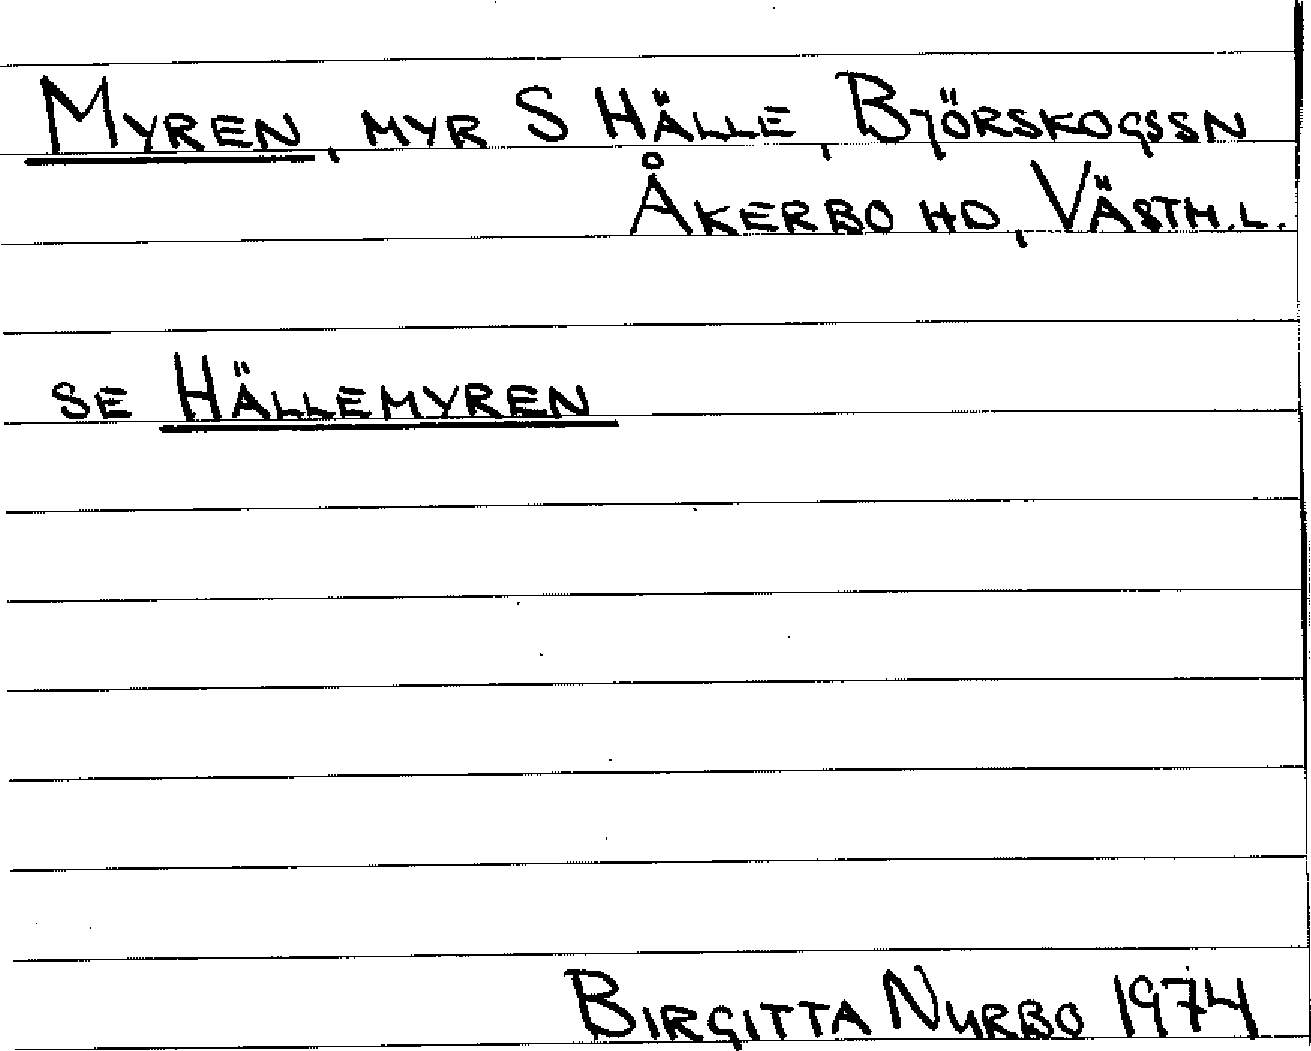 MYREN, MYR S HÄLLE, BJÖRSKOGSSN
ÅKERBO HD, VÄSTM.L.
SE HÄLLEMYREN
BIRGITTA NYRBO 1974